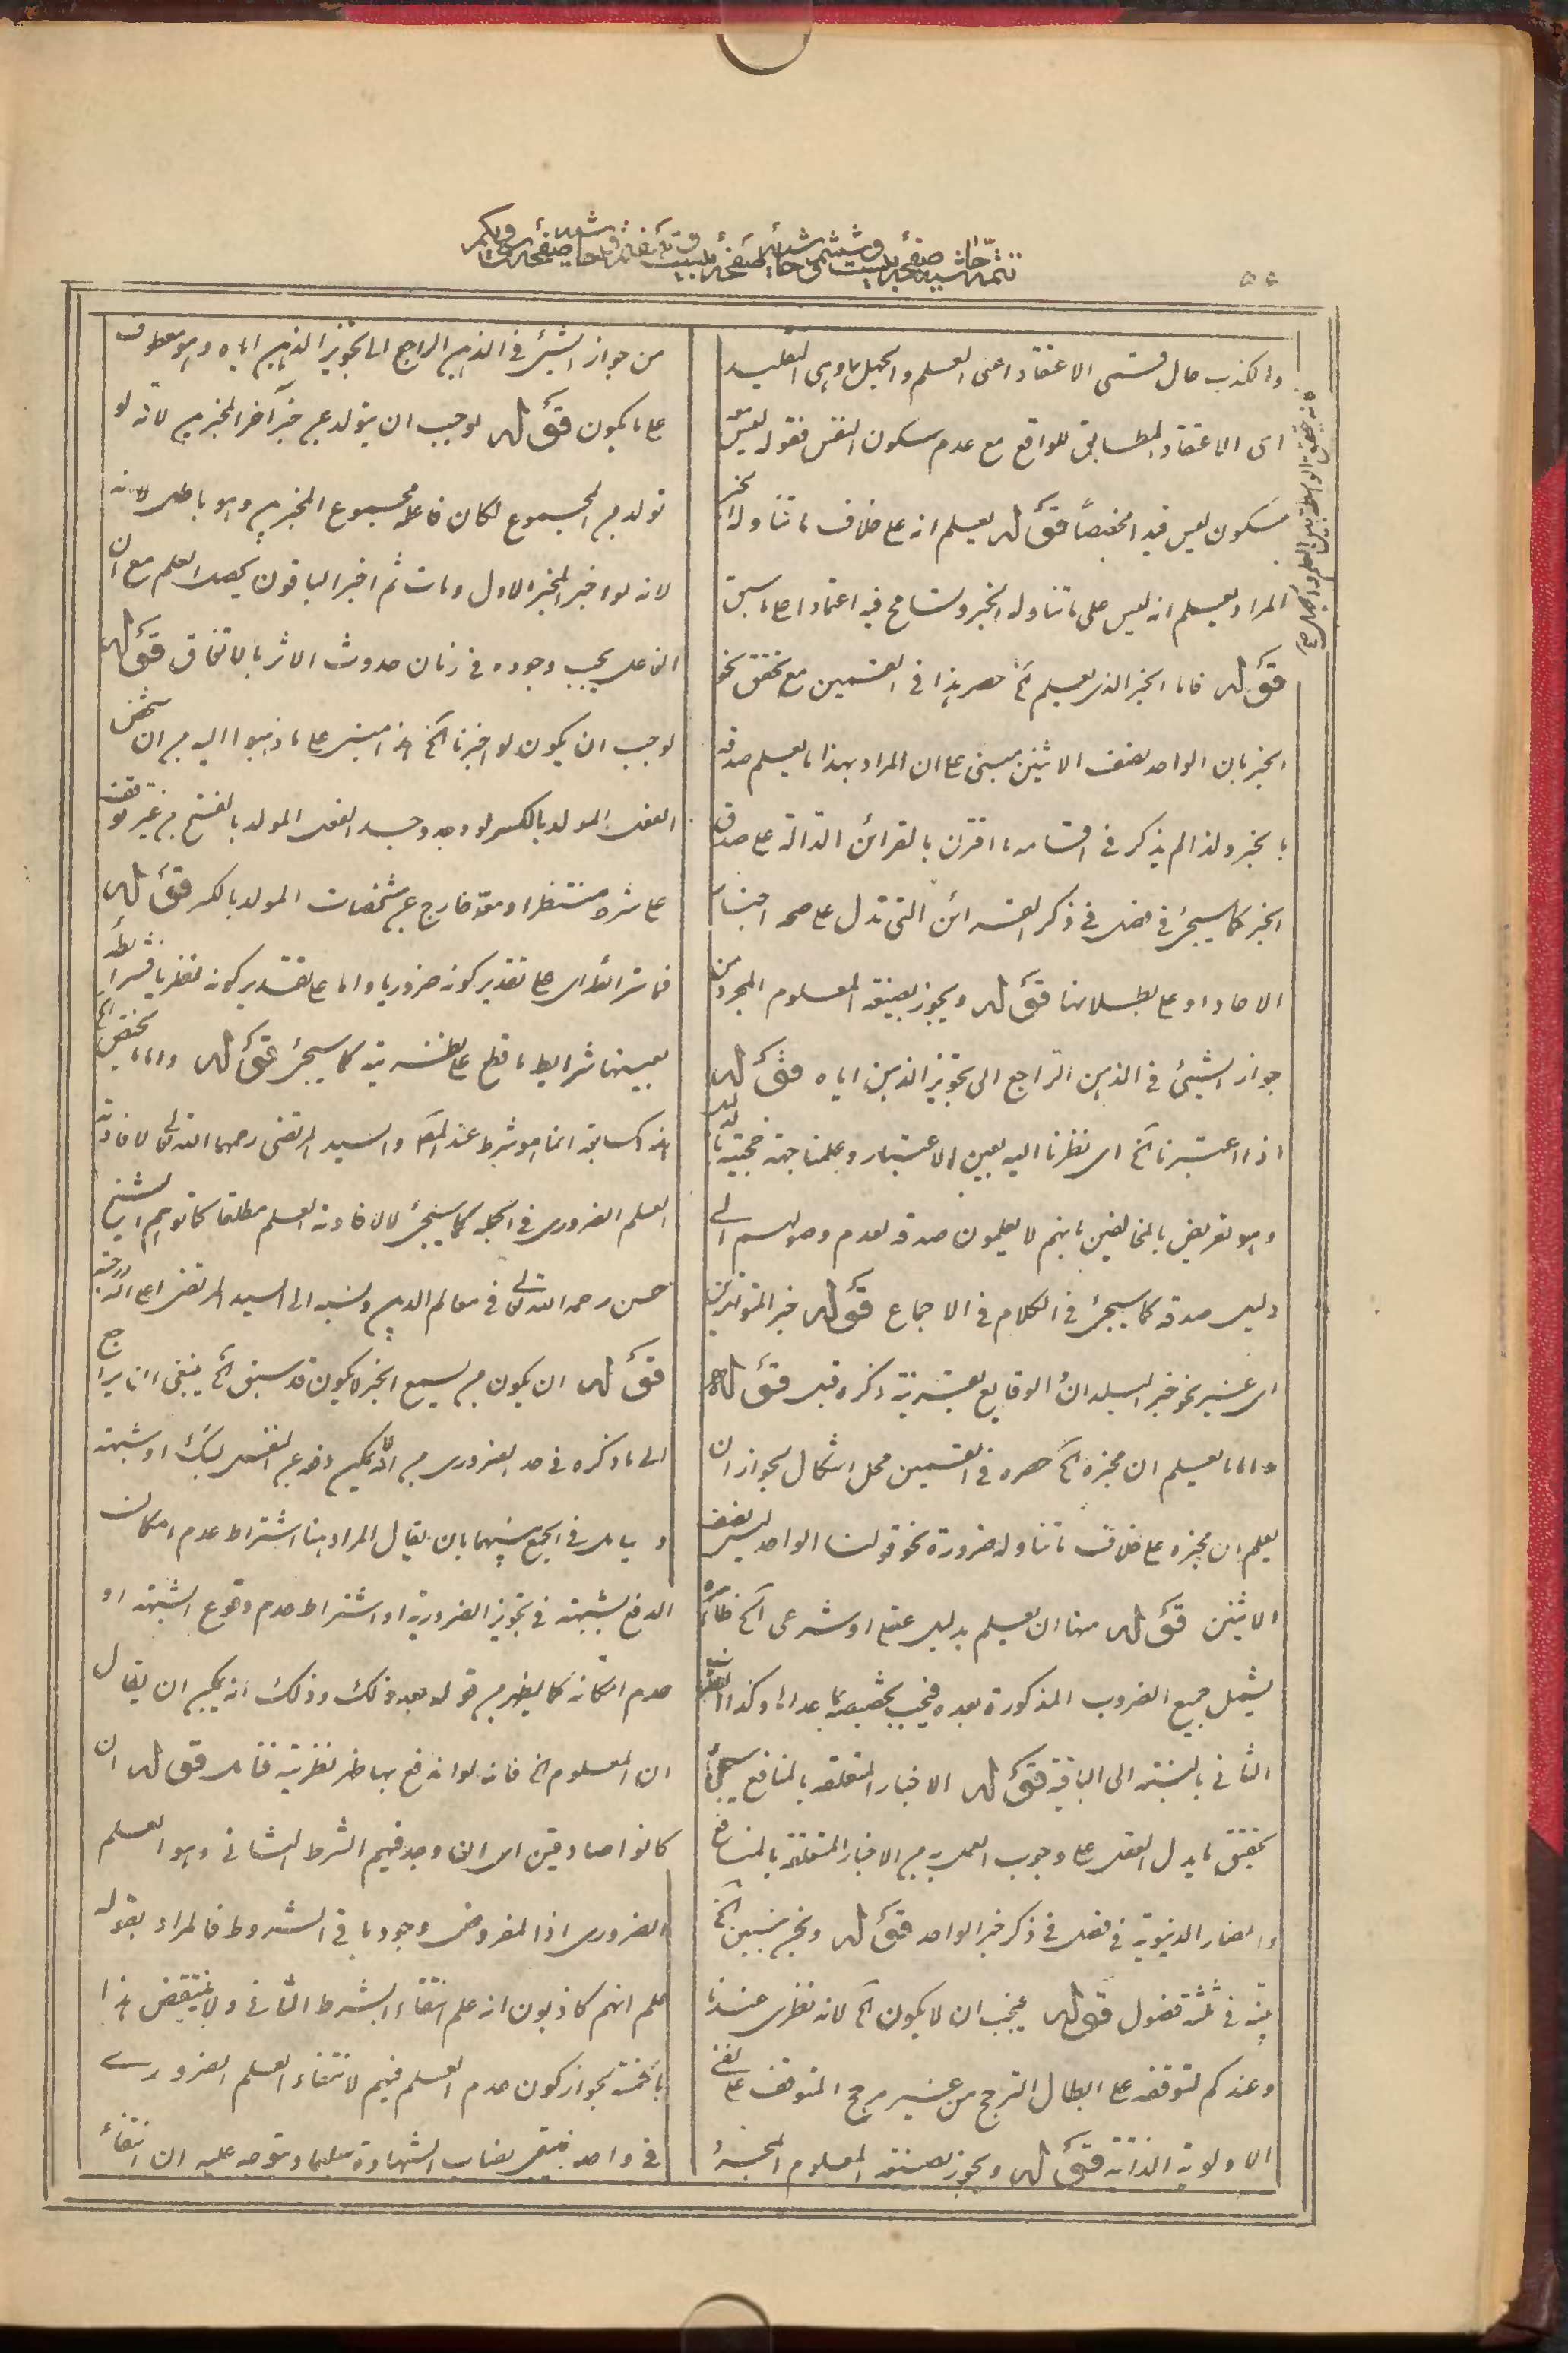 تتمه حاشیه صفحه بیست و ششم
والكذب حال قسمی الاعتقاد اعنی العلم والجهل
ای الاعتقاد المطابق للواقع مع عدم سكون النفس فقوله ليس
سكون ليس قيدا مخصصاً قوله يعلم انه على خلاف ما تناوله الخبر
المراد يعلم انه ليس على ما تناوله الخبر وتسامح فيه اعتمادا على ما سبق
قوله فاما الخبر الذی يعلم الخ حصر هذا فی القسمين مع تحقق نحو
الخبر بان الواحد نصف الاثنين مبنی على ان المراد بهذا ما يعلم صدقه
بالخبر ولذا لم يذكر فی اقسامه ما اقترن بالقرائن الدالة على صدق
الخبر كما سيجیء فی فصل فی ذكر القرائن التی تدل على صحة اخبار
الاحاد او على بطلانها قوله ويجوز بصيغة المعلوم المجرد من
جواز الشیء فی الذهن الراجع الى تجويز الذهن اياه قوله
اذا اعتبرنا الخ ای نظرنا اليه بعين الاعتبار وعلمنا جهة حجيته
وهو تعريض بالمخالفين بانهم لا يعلمون صدقه لعدم وصولهم الى
دليل صدقه كما سيجیء فی الكلام فی الاجماع قوله خبر المتواترين
ای غير نحو خبر البلدان والوقايع بقرينة ذكره قبل قوله
واما ما يعلم ان مخبره الخ حصره فی القسمين محل اشكال لجواز ان
يعلم ان مخبره على خلاف ما تناوله ضرورة نحو قولنا الواحد ليس نصف
الاثنين قوله منها ان يعلم بدليل عقلی او شرعی الخ ظاهره
يشمل جميع الضروب المذكورة بعده فيجب تخصيصه بما عداها وكذا
الثانی بالنسبة الى الباقية قوله الاخبار المتعلقة بالمنافع سيجیء
تحقيق ما يدل العقل على وجوب العمل به من الاخبار المتعلقة بالمنافع
والمضار الدنيوية فی فصل فی ذكر خبر الواحد قوله ونحن نبين الخ
بينه فی ثلثة فصول قوله فيجب ان لا يكون الخ لانه نظری عندنا
وعندكم لتوقفه على ابطال الترجح من غير مرجح المتوقف على نفی
الاولوية الذاتية قوله ويجوز بصيغة المعلوم المجرد
من جواز الشیء فی الذهن الراجع الى تجويز الذهن اياه وهو معطوف
على ما يكون قوله لوجب ان يتولد عن خبر آخر المخبرين لانه لو
تولد من المجموع لكان فاعله مجموع المخبرين وهو باطل لانه
لانه لو اخبر المخبر الاول ومات ثم اخبر الباقون يحصل العلم مع ان
الفاعل يجب وجوده فی زمان حدوث الاثر بالاتفاق قوله
لوجب ان يكون لو اخبرنا الخ هذا مبنی على ما ذهبوا اليه من ان شخص
الفعل المولد بالكسر لو وجد وجد الفعل المولد بالفتح من غير توقف
على شرط منتظر او معد خارج عن مشخصات المولد بالكسر قوله
فما شرائط ای على تقدير كونه ضروريا واما على تقدير كونه نظريا فشرائطه
بعينها شرايط ما قطع على نظريته كما سيجیء قوله واما ما يختص الخ
هذه كسابقه انما هو شرط عند المص والسيد المرتضى رحمهما الله تعالى لافادة
العلم الضروری فی الجملة كما سيجیء لا لافادة العلم مطلقا كما توهم الشيخ
حسن رحمه الله تعالى فی معالم الدين ونسبه الى السيد المرتضى اعلى الله درجته
قوله ان يكون من يسمع الخبر لا يكون قد سبق الخ ينبغی ان يراجع
الى ما ذكره فی حد الضروری من انه لا يمكن دفعه عن النفس بشك او شبهة
و يتامل فی الجمع بينهما بان يقال المراد هنا اشتراط عدم امكان
الدفع بشبهة فی تجويز الضرورية او اشتراط عدم وقوع الشبهة او
عدم امكانه كما يظهر من قوله بعد ذلك وذلك انه يمكن ان يقال
ان المعلوم الخ فانه لو اندفع بها ظهر نظريته فتامل قوله ان
كانوا صادقين ای ان وجد فيهم الشرط الثانی وهو العلم
الضروری اذ المفروض وجود باقی الشروط فالمراد بقوله
علم انهم كاذبون انه علم انتفاء الشرط الثانی ولا ينتقض هذا
بخمسة لجواز كون عدم العلم فيهم لانتفاء العلم الضروری
فی واحد فيبقى نصاب الشهادة سليما ويتوجه عليه ان انتفاء